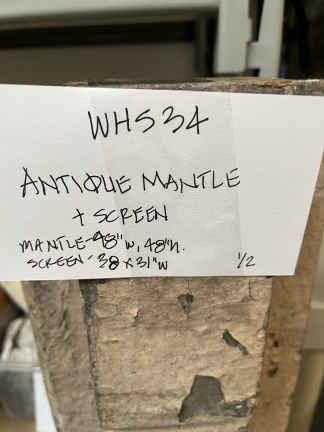 WHS34
ANTIQUE MANTLE
+ SCREEN
MANTLE-48"W, 48"H.
SCREEN-38 x 31"W
1/2